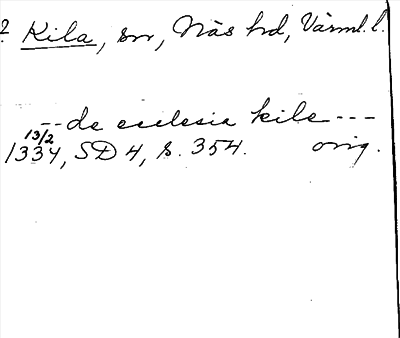 ? Kila, sn, Näs hd, Värml. l.
--de ecclesia kile---
13/2
1334, SD 4, s. 354. orig.